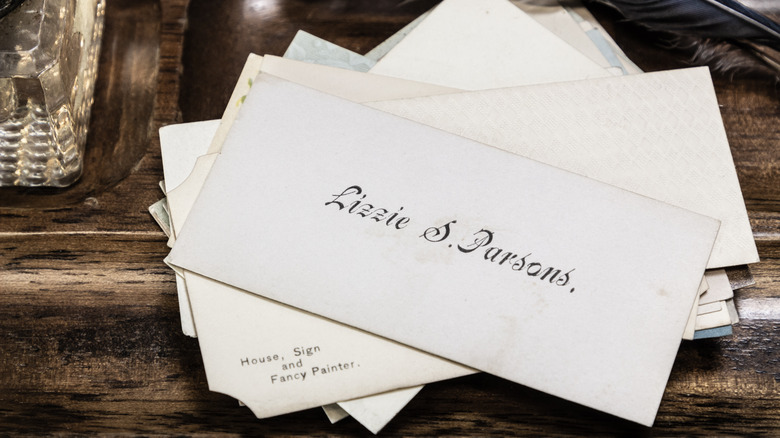 Lizzie S. Parsons.
House, Sign
and
Fancy Painter.